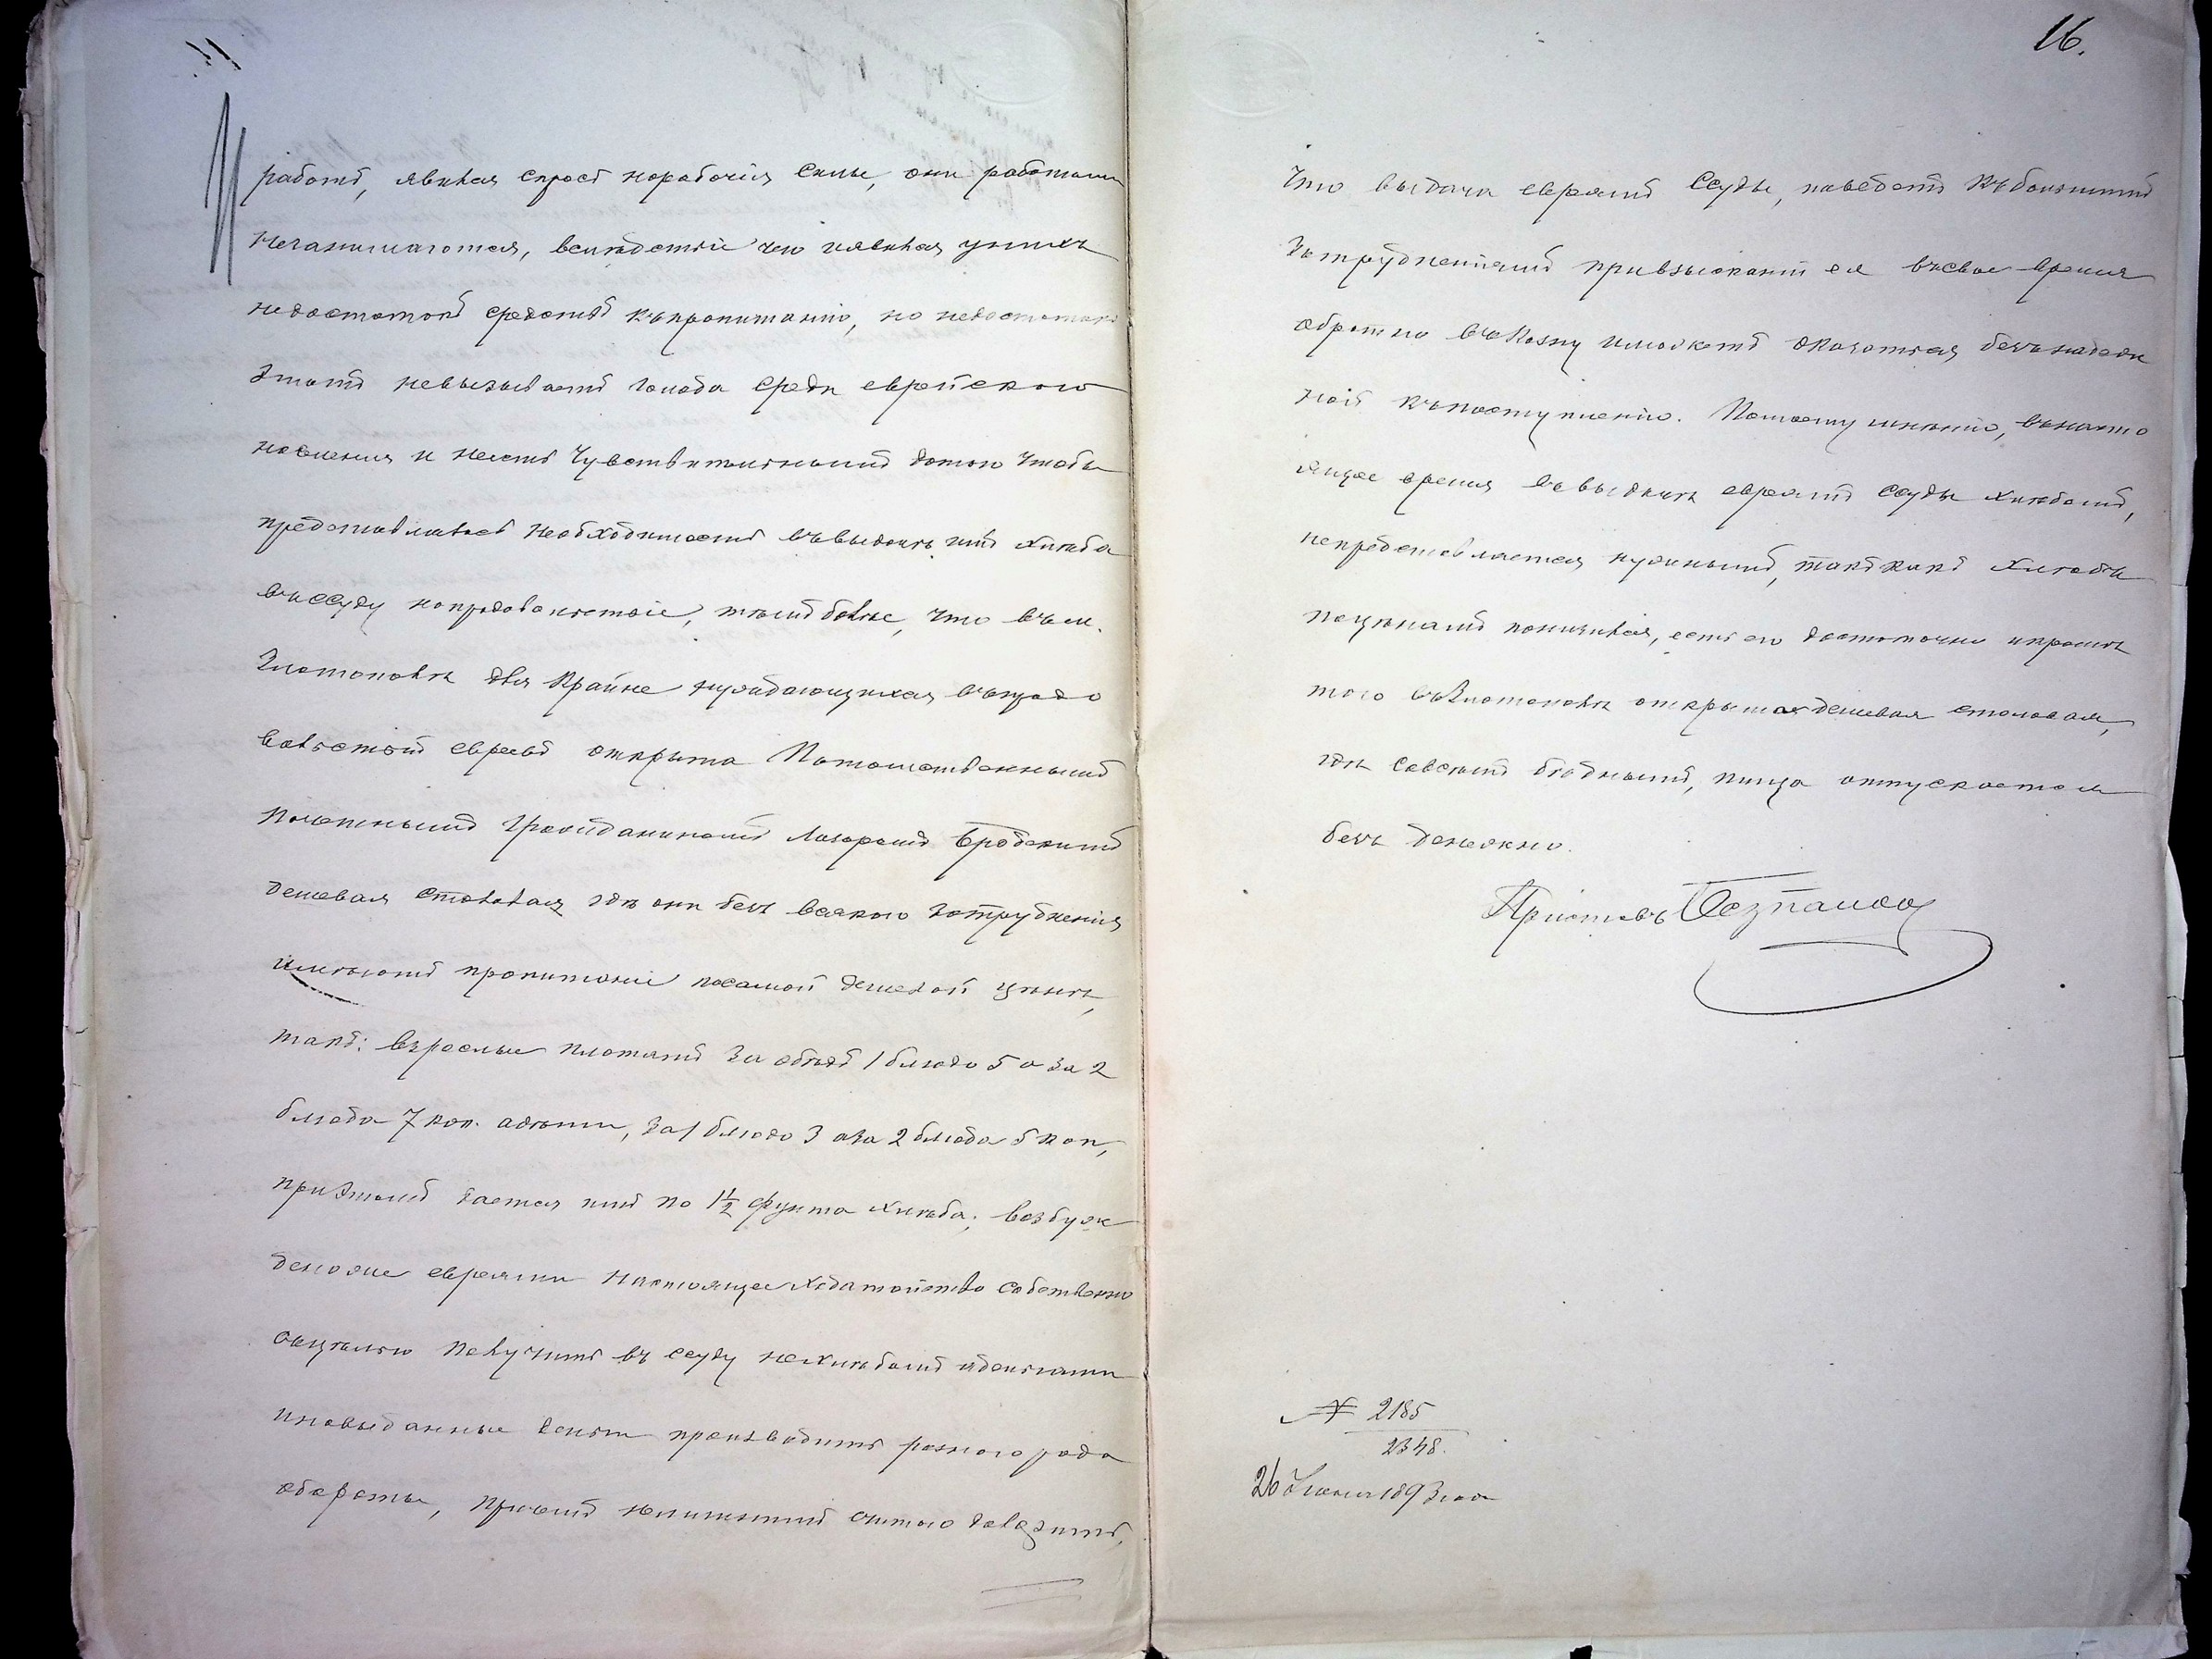 16.
работъ, явился спросъ нарабочія силы, они работами
Незанимаются, вслѣдствіе чего и явился унихъ
недостатокъ средствъ къпропитанію, но недостатокъ
этотъ невызываетъ голода среди еврейскаго
населенія и несть чувствительнымъ дотого чтобы
представлялась необходимость въвыдачѣ имъ хлѣба
въссуду напродовольствіе, тѣмъ болѣе, что въ м.
Златополѣ для крайне нуждающихся въпродо
вольствіи евреевъ открыта Потомственнымъ
Почетнымъ Гражданиномъ Лазаремъ Бродскимъ
дешевая столовая гдѣ они безъ всякаго затрудненія
имѣютъ пропитаніе посамой дешевой цѣнѣ,
такъ: взрослые платятъ за обѣдъ 1 блюдо 5 а за 2
блюда 7 коп. адѣти, за 1 блюдо 3 аза 2 блюда 5 коп,
приэтомъ дается имъ по 1 1/2 фунта хлѣба; возбуж
деное евреями настоящее ходатайство собственно
сьцѣлью получить въ ссуду нехлѣбомъ адѣньгами
инавыданные деньги производить разного рода
обороты, причемъ нелишнимъ считаю доложить,
Что выдача евреямъ ссуды, поведетъ къбольшимъ
Затрудненіямъ привзысканіи ея въсвое время
обратно въказну иможетъ оказаться безънадеж
ной къпоступленію. Помоему мнѣнію, внасто
ящее время въвыдачѣ евреямъ ссуды хлѣбомъ,
непредставляется нужнымъ, такъ какъ хлѣбъ
поцѣнамъ понизился, есть его достаточно икромѣ
того въЗлатополѣ открытая дешевая столовая,
гдѣ совсѣмъ бѣднымъ, пища отпускается
безъ денежно.
Приставъ
№ 2185
2348.
26 Іюня 1893 года